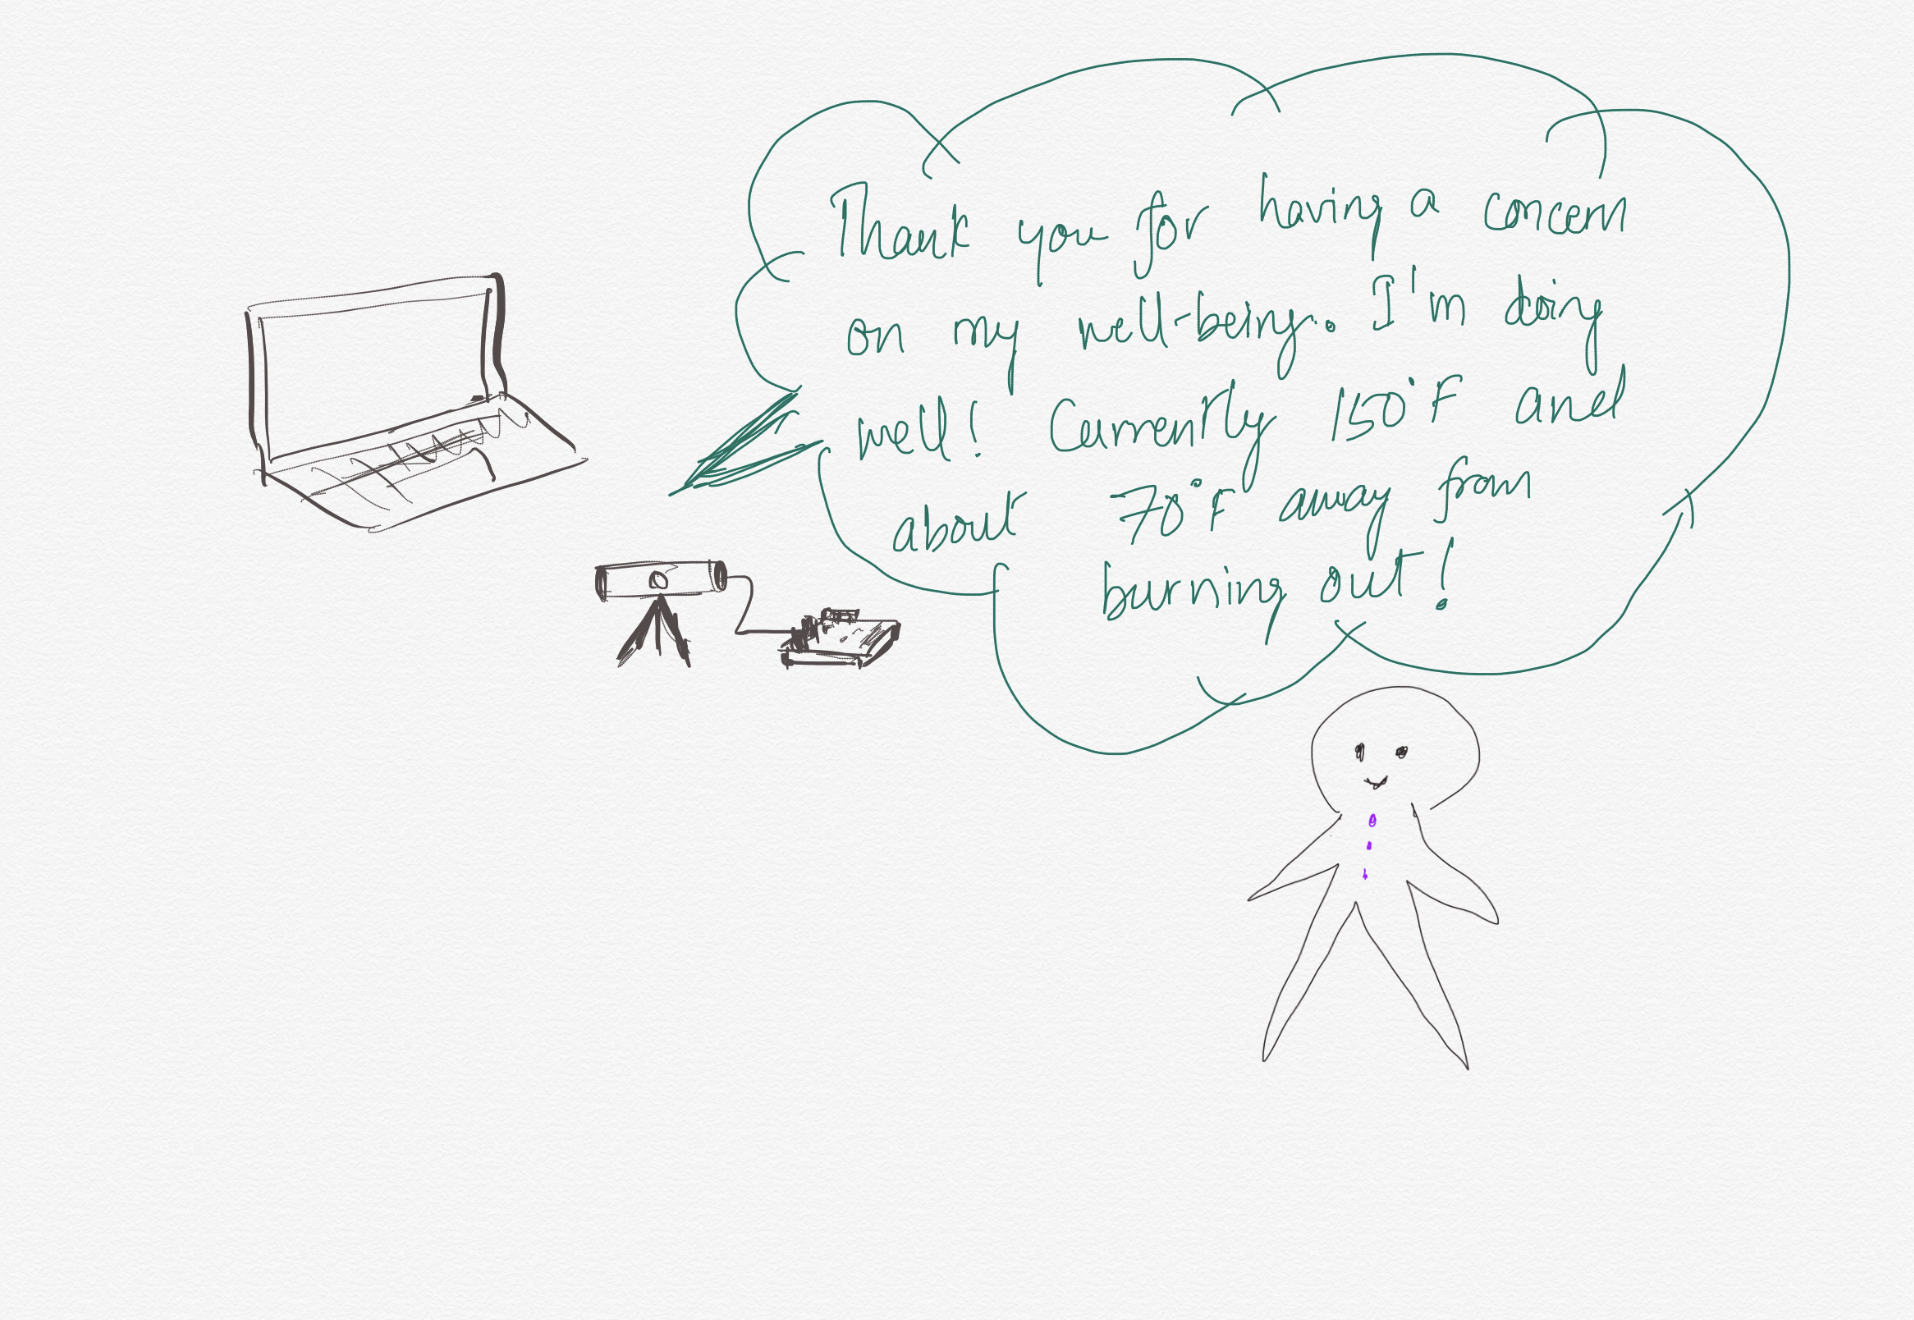 Thank you for having a concern
on my well-being. I'm doing
well! Currently 150°F and
about 70°F away from
burning out!